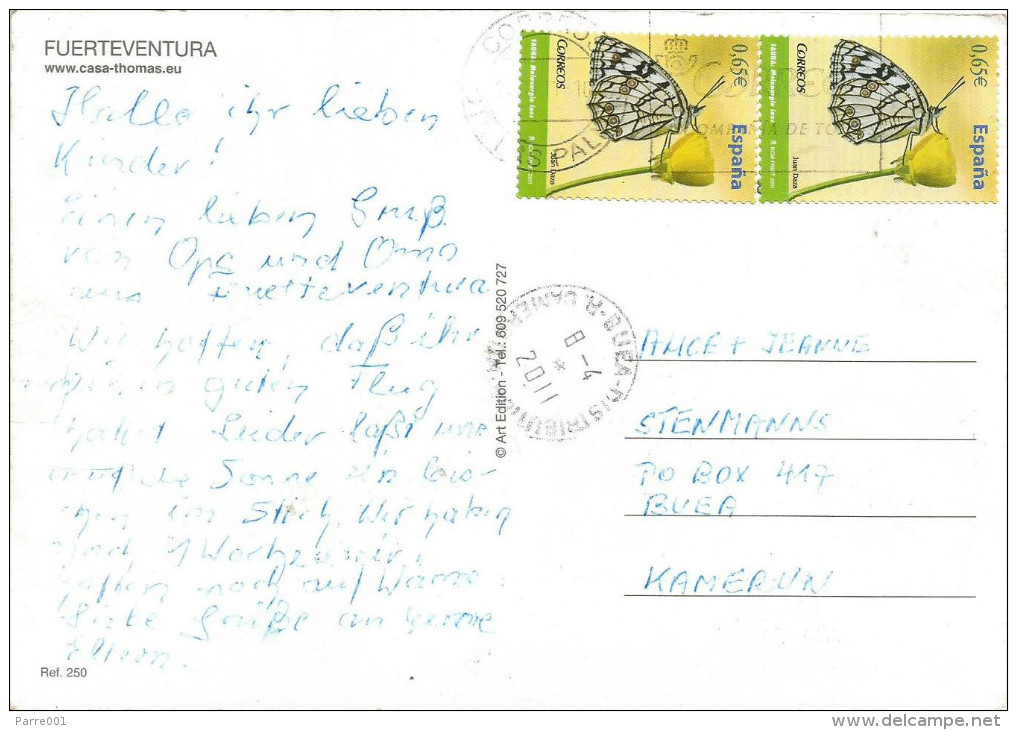 FUERTEVENTURA
www.casa-thomas.eu
Hallo ihr lieben
Kinder!
Einen lieben Gruß
von Opa und Oma
aus Fuerteventura
Wir hoffen, daß ihr
guten Flug
hattet. Leider laßt uns
Sonne ein bis-
chen im Stich. Wir haben
noch 1 Woche u. wir
hoffen noch auf Wärme.
Liebe Grüße an eure
Eltern.
Ref. 250
© Art Edition - Tel.: 609 520 727
CORREOS
FAUNA: Melanargia ines
0,65€
España
Juan Daza
CORREOS
FAUNA: Melanargia ines
0,65€
España
Juan Daza
BUEA-DISTRIBUTION
8-4
2011
ALICE + JEANNE
STENMANNS
PO BOX 417
BUEA
KAMERUN
Parre001
www.delcampe.net